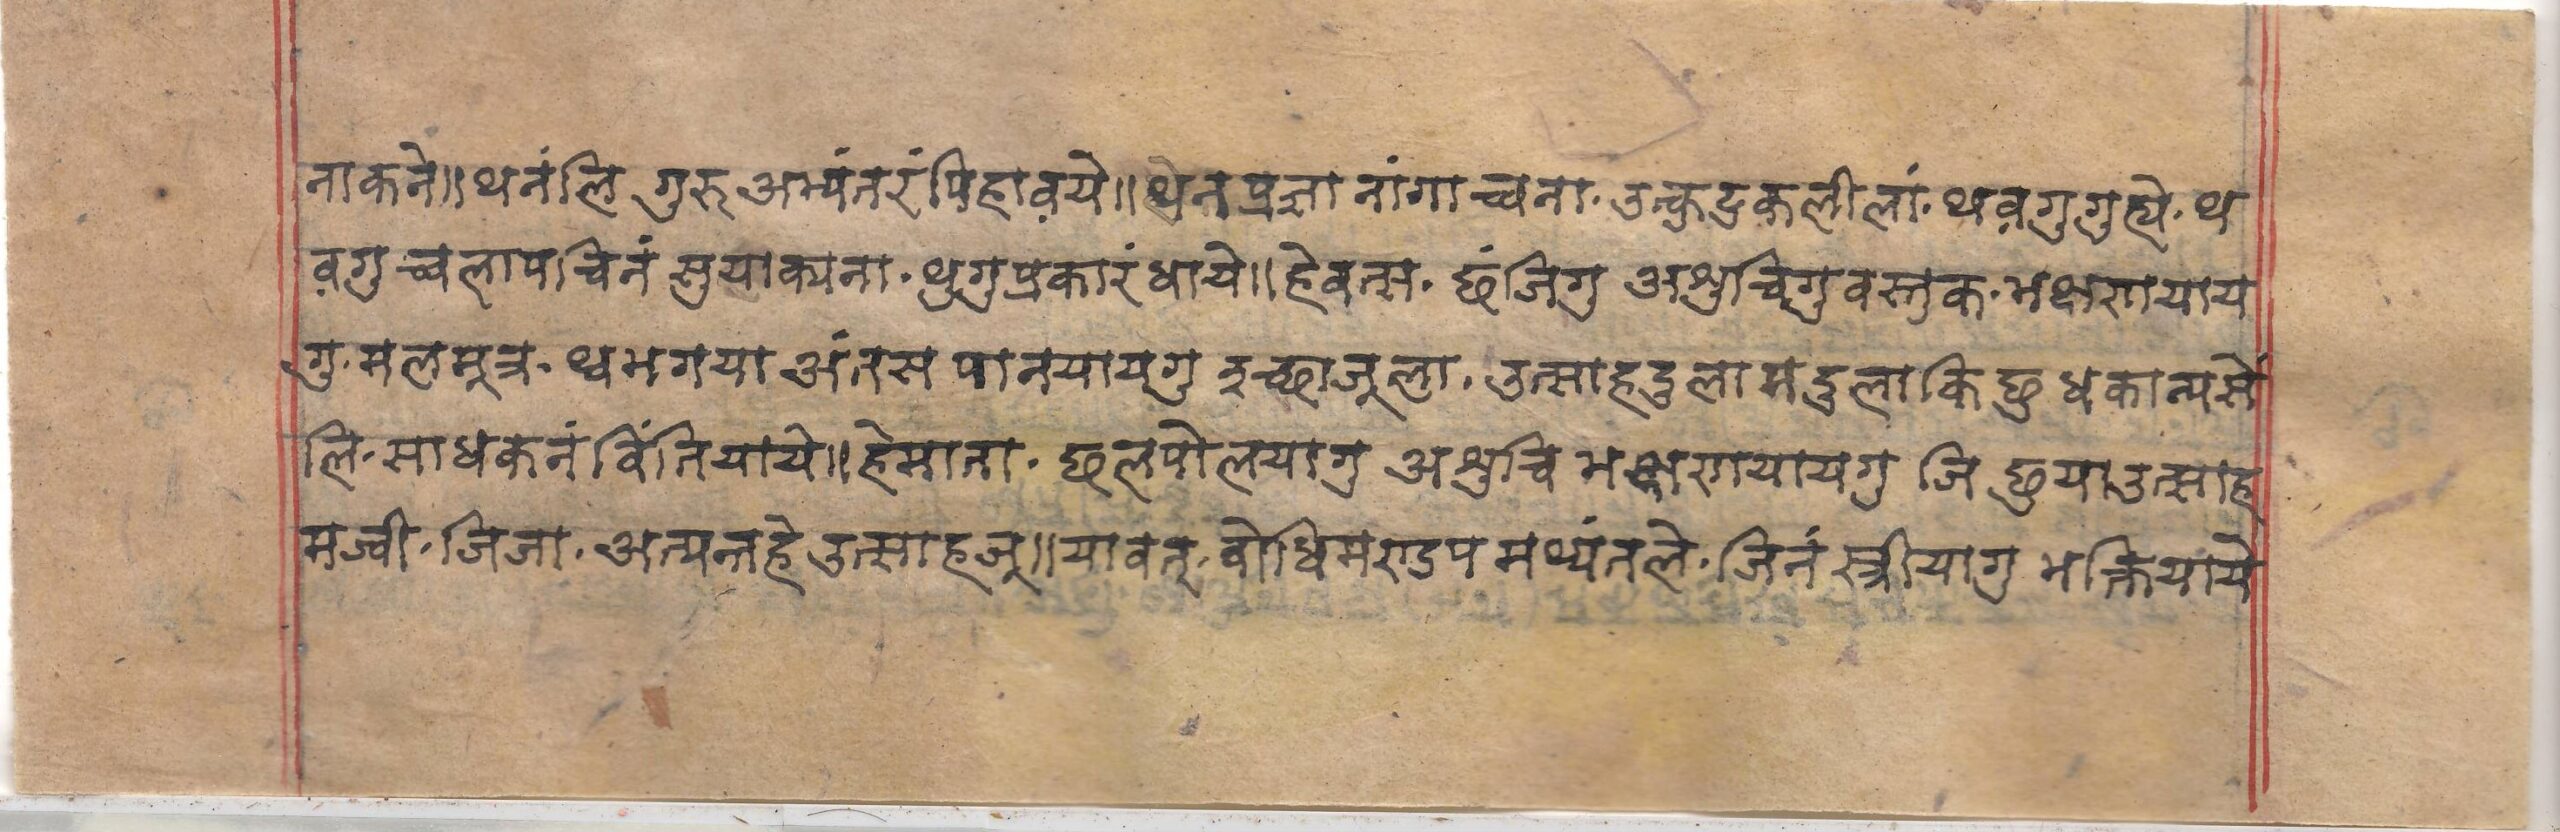 नाकने॥ थनंलि गुरु अभ्यंतरं पिहावये॥ थेन प्रज्ञा नांगा च्वना· उत्कुटुकलीलां· थवगु गुह्ये· थ
वगु च्वलापचिनं सुयाक्यना· थुगुप्रकारं धाये॥ हेवत्स· छंजिगु अशुचिगु वस्तुक· भक्षणयाय
गु· मलमूत्र· थ्व भगया अंतस पानयाय्गु इच्छाजूला· उत्साहदुला मदुलाकि छु धकान्यसें
लि· साधकनं विंतियाये॥ हेमाता· छलपोलयागु अशुचि भक्षणयायगु जि छुया उत्साह
मज्वी· जिजा· अत्यन्तहे उत्साहजू॥ यावत्· बोधिमण्डप मध्यंतले· जिनं स्त्रीयागु भक्तियाये